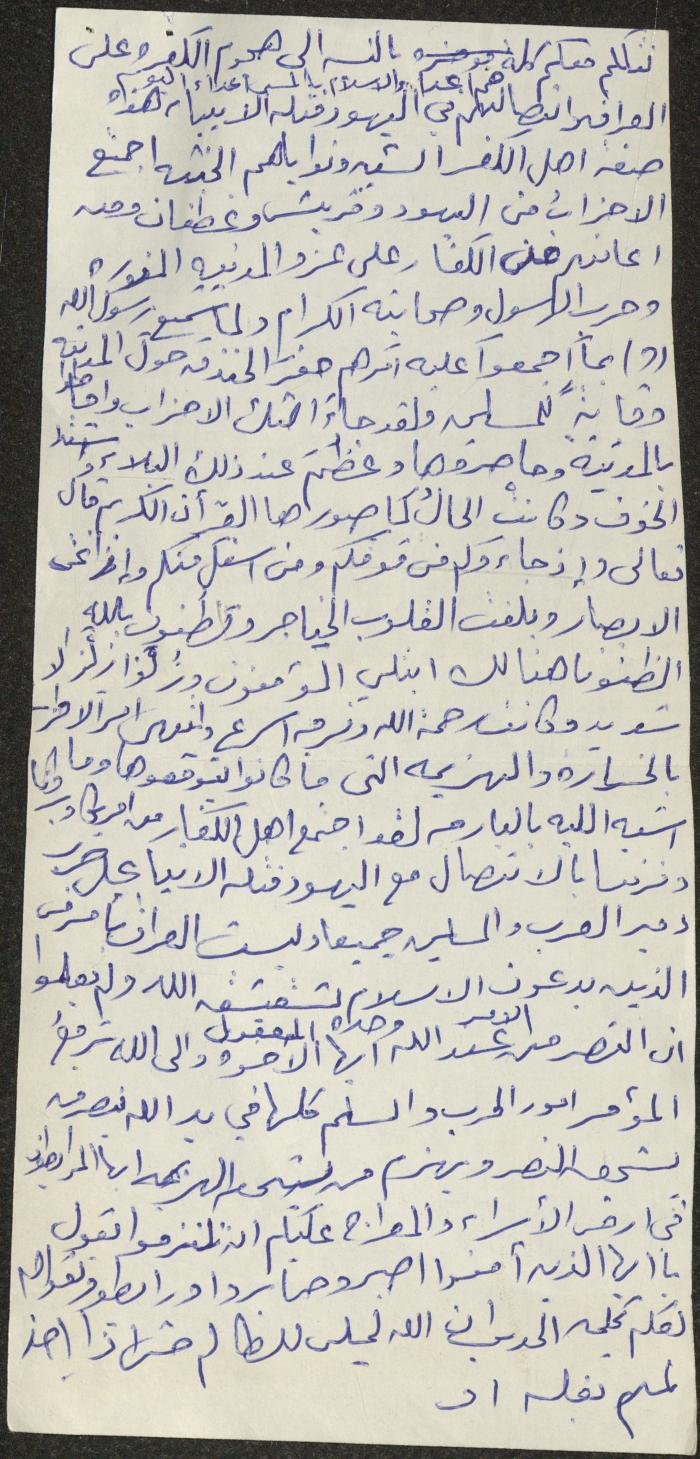 نتكلم معكم كلمة بالنسبه الى هجوم الكفر وعلى
هم اعداء الاسلام بالامس اعداء اليوم
العراق واتصالهم في اليهود قتلة الانبياء هذه
صفة اهل الكفر الشنيعه ونواياهم الخبيثه اجتمع
الاحزاب من اليهود وقريش وغطفان ومن
اعانهم من الكفار على غزو المدينه المنوره
وحرب الرسول وصحابته الكرام ولما سمع رسول الله
(ص) بما اجمعوا عليه امرهم حفر الخندق حول المدينه
وقاية للمسلمين ولقد جاءت تلك الاحزاب واحاطوا
بالمدينة وحاصروها وعظم عند ذلك البلاء واشتد
الخوف وكانت الحال كما صورها القرآن الكريم قال
تعالى وإذ جاءوكم من فوقكم ومن اسفل منكم وإذ زاغت
الابصار وبلغت القلوب الحناجر وتظنون بالله
الظنونا هنالك ابتلي المؤمنون وزلزلوا زلزالا
شديد وكانت رحمة الله ونصره اسرع وانتهى امر الاحزاب
بالخساره والهزيمه التي ما كانوا يتوقعوها وما
اشبه الليله بالبارحه لقد اجتمع اهل الكفار من امريكا وبريطانيا
وفرنسا بالاتصال مع اليهود قتلة الانبياء على حرب
العرب والمسلمين جميعا وليست العراق
الذين يدعون الاسلام الله ولم يعلموا
ان النصر من عند الله وحده ايها الاخوه والى الله ترجع
الامور
المؤمن امور الحرب والسلم كلها في يد الله ينصر من
يستحق النصر ويهزم من يستحق الهزيمه ايها المرابطون
في ارض الأسراء والمعراج عليكم ان تلتزموا بقول
يا ايها الذين آمنوا اصبروا وصابروا ورابطوا وتقوا الله
لعلكم تفلحون الحديث ان الله ليملي للظالم حتى اذا اخذه
لم يفلته او